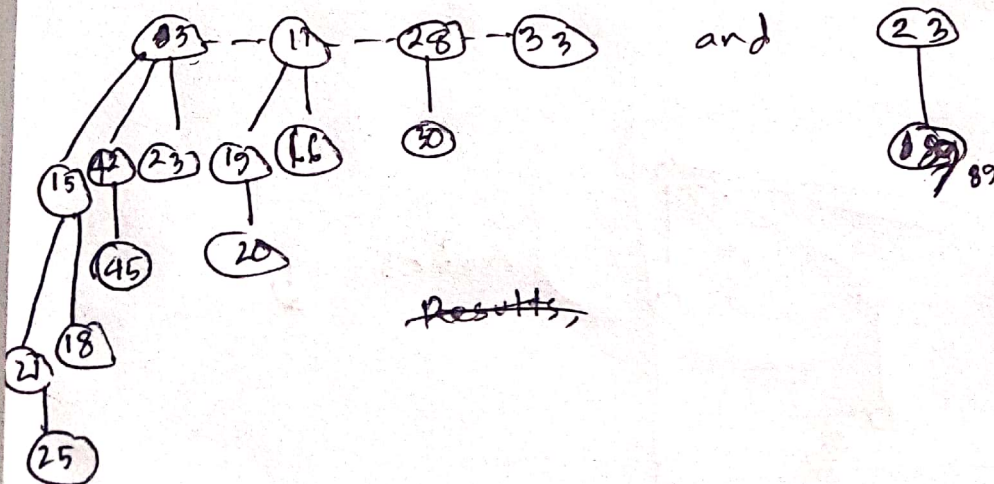 13 17 28 33 and 23
15 42 23 19 66 30 89
45 20
Results,
21 18
25